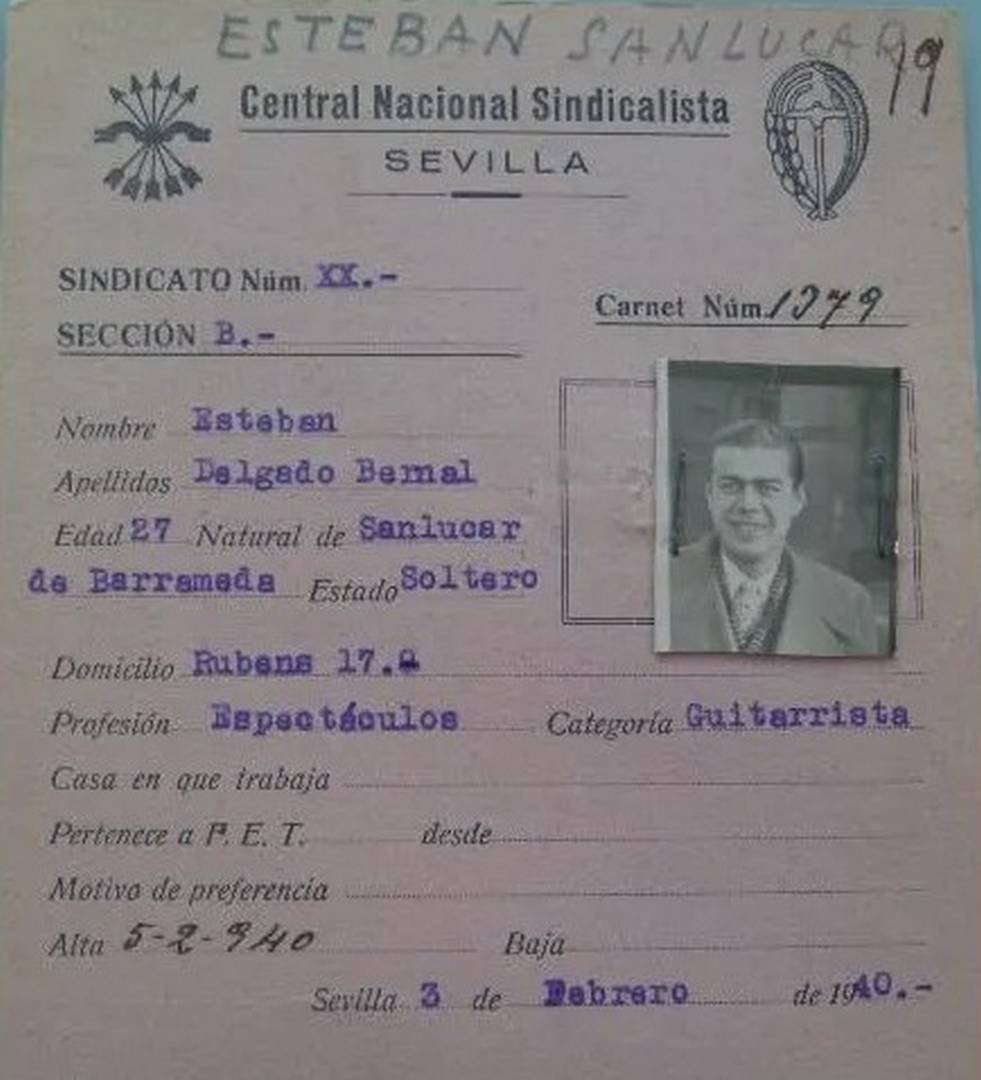 ESTEBAN SANLUCAR 19
Central Nacional Sindicalista
SEVILLA
SINDICATO Núm. XX.-
Carnet Núm. 1379
SECCIÓN B.-
Nombre Esteban
Apellidos Delgado Bernal
Edad 27 Natural de Sanlucar
de Barrameda Estado Soltero
Domicilio Rubens 17.
Profesión Espectáculos Categoría Guitarrista
Casa en que trabaja
Pertenece a F. E. T. desde
Motivo de preferencia
Alta 5-2-940 Baja
Sevilla 3 de Febrero de 1940.-